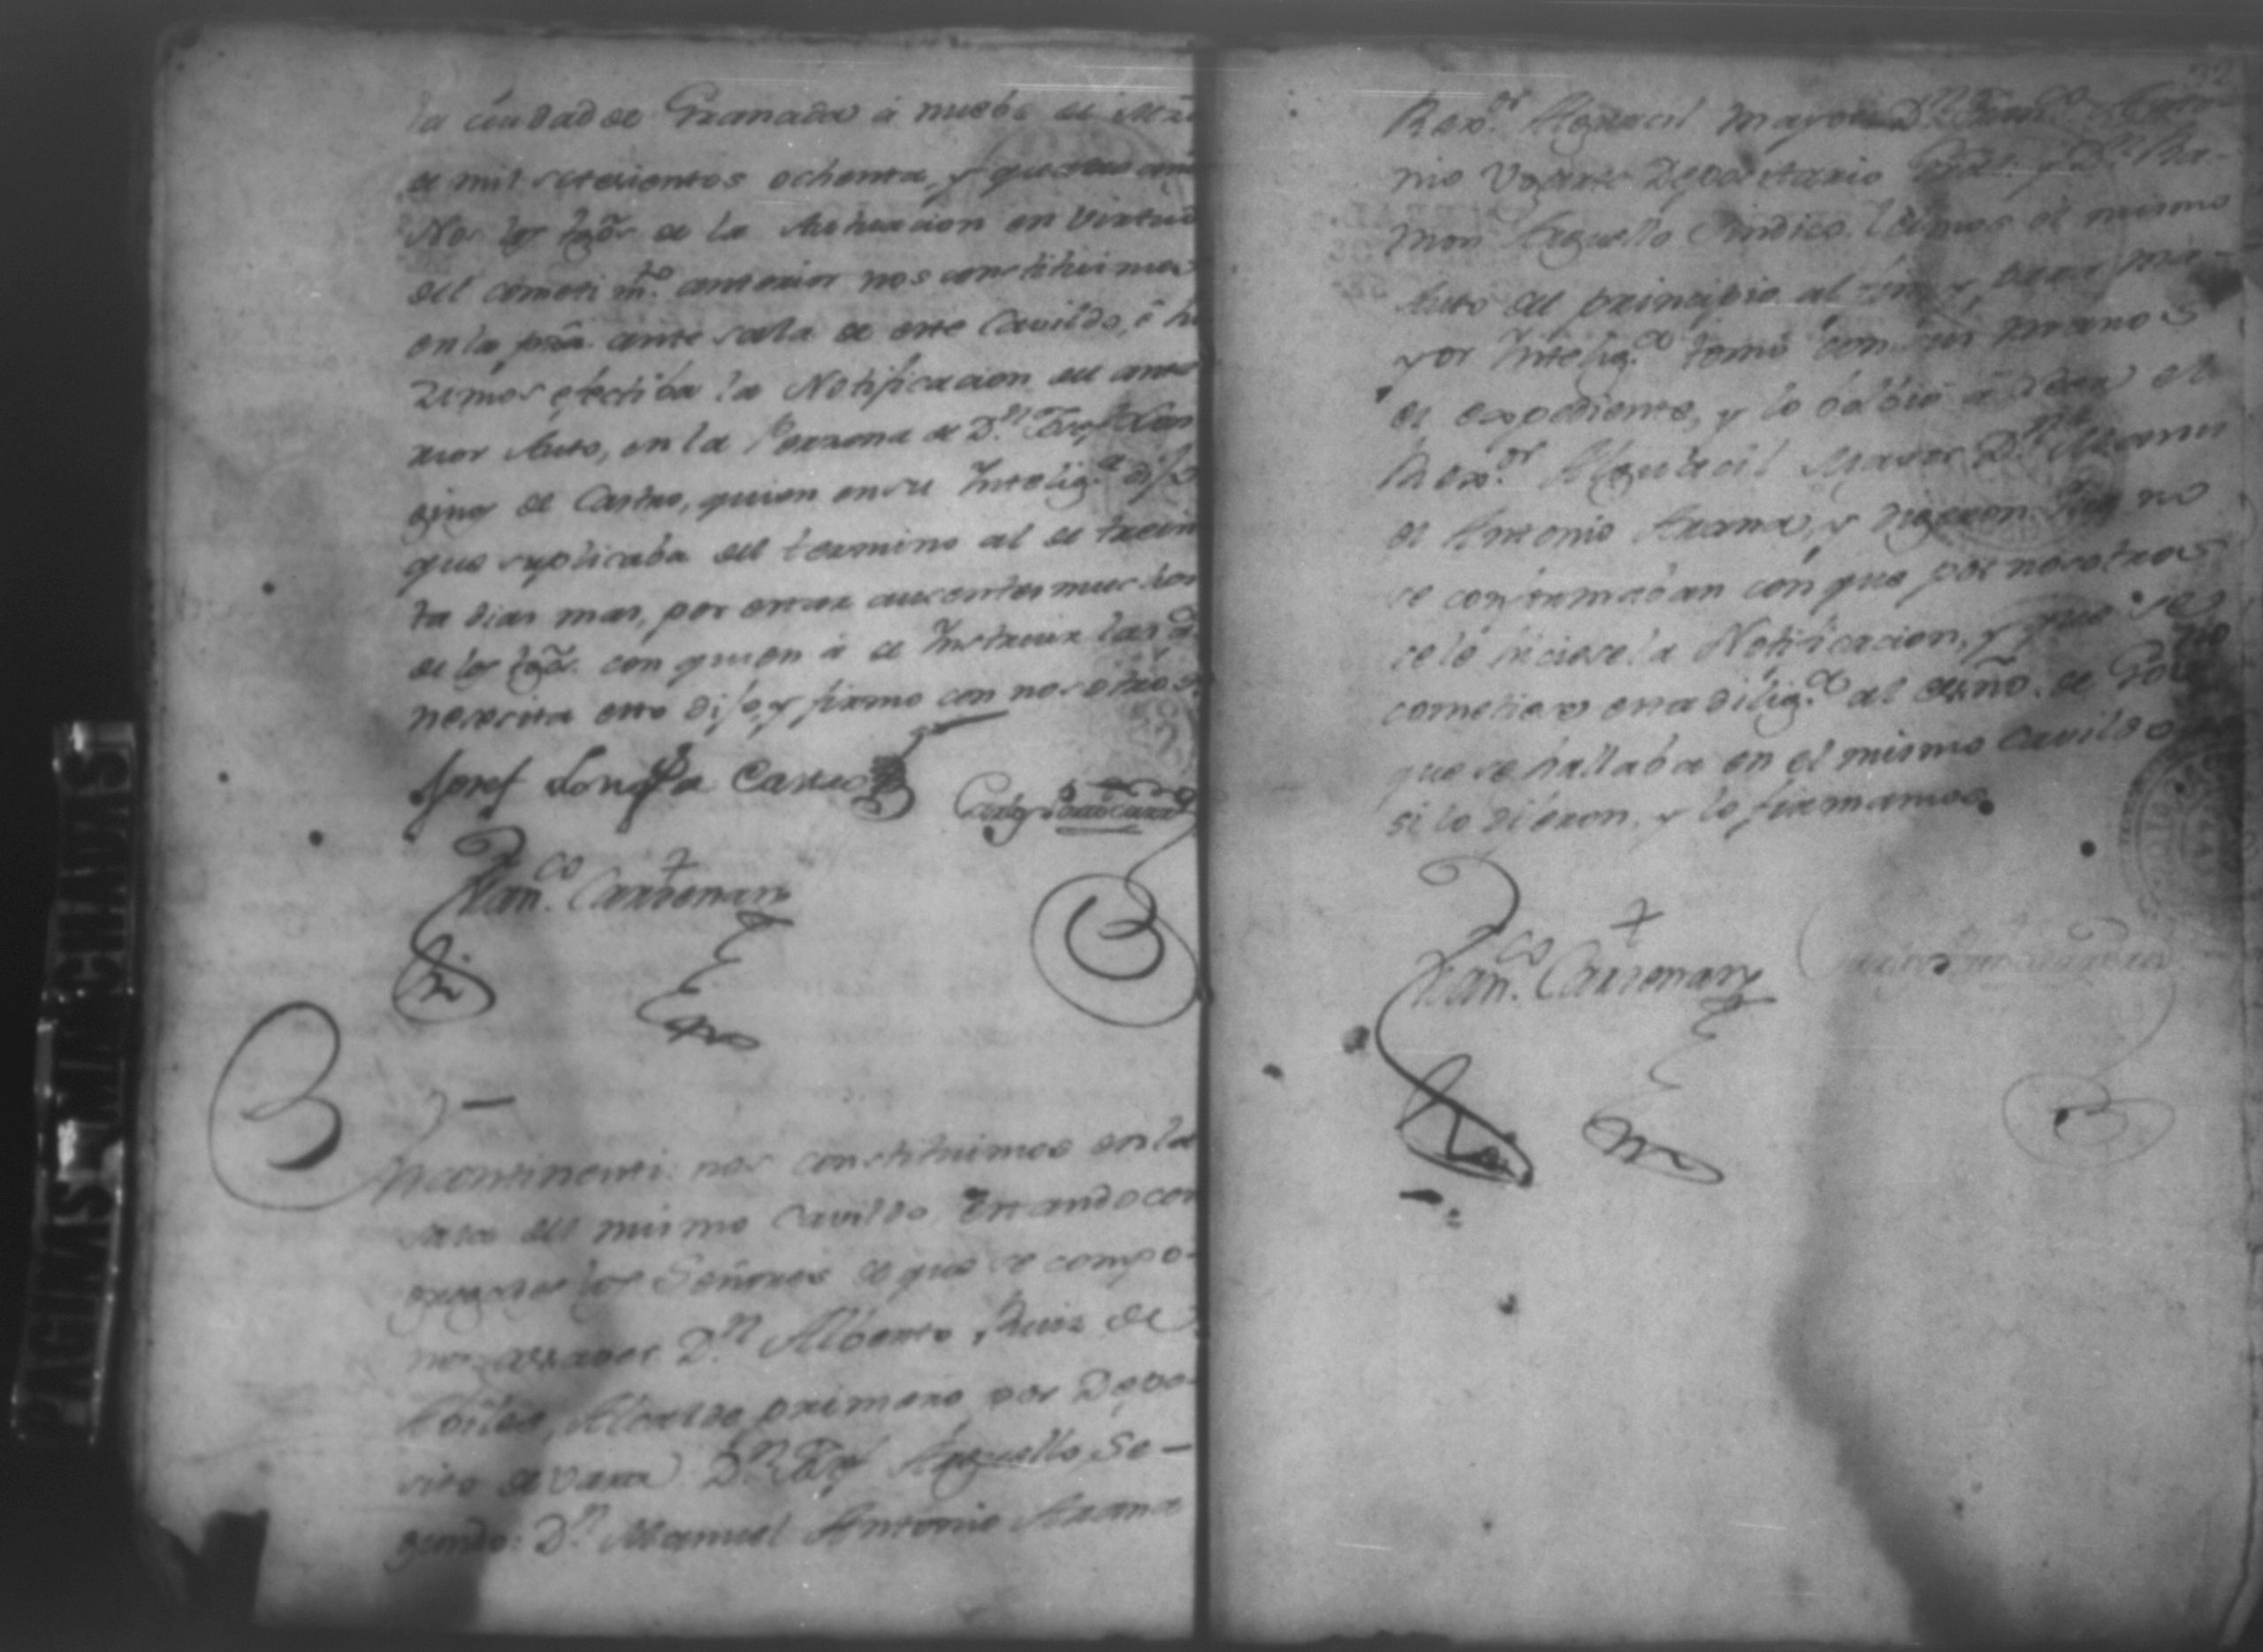 la ciudad de Granada à nuebe de Mzo
de mil setecientos ochenta, y quatro
Nos los tgõs de la Actuacion en Virtud
del cometim.to anterior nos constituimos
en la pra. ante sala de este Cavildo, é hi
zimos efectiba la Notificacion del ante
rior Auto, en la Perzona de D.n Josef Lon
ginos de Castro, quien en su Intelig.a dijo
que suplicaba del termino al de trein
ta dias mas, por estar ausentes muchos
de los tgõs. con quien à de Instruir las q.
necesita esto dijo, y firmo con nosotros
Josef Longs de Castro
Fran.co Cardenas
Incontinenti: nos constituimos en la
sala del mismo Cavildo, estando con
gregados los Señores de que se compo-
ne D.n Alberto Ruiz de
Abiles, Alcalde primero por Depo-
sito de vara D.n Josef Arguello, Se-
gundo: D.n Manuel Antonio Arana
22
Rex.or Alguacil mayor D.n Fran.co Anto
nio Ugarte Depocitario Gral. y D.n Ra-
mon Arguello Sindico. leimos el mismo
Auto del principio al fin y, para ma-
yor Intelig.a tomó con sus manos
el expediente, y lo bolbio à leer el
Rex.or Alguacil Mayor D.n Manu
el Antonio Arana, y digeron que no
se conformaban con que por nosotros
se le iciese la Notificacion, y que se
cometiese esta dilig.a al esno. de Gov.no
que se hallaba en el mismo Cavildo
si lo dieron, y lo firmamos.
Fran.co Cardenas
PAGINAS MANCHADAS